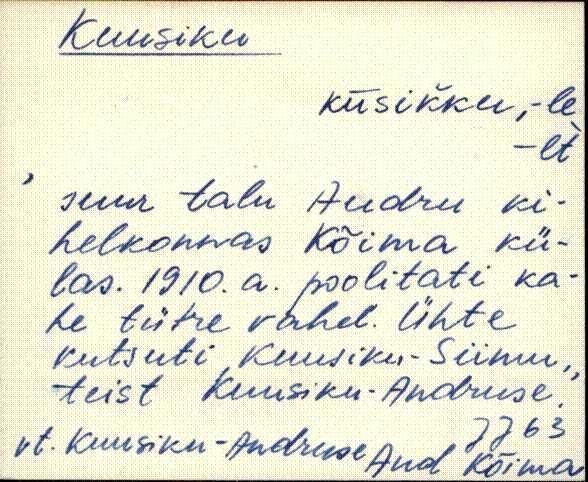 Kuusiku
kūsik̆ku, -le
-l̀t
suur talu Audru ki-
helkonnas Kõima kü-
las. 1910. a. poolitati ka-
he tütre vahel. Ühte
kutsuti Kuusiku-Siimu,
teist Kuusiku-Andruse.
JJ 63
vt. Kuusiku-Andruse Aud Kõima